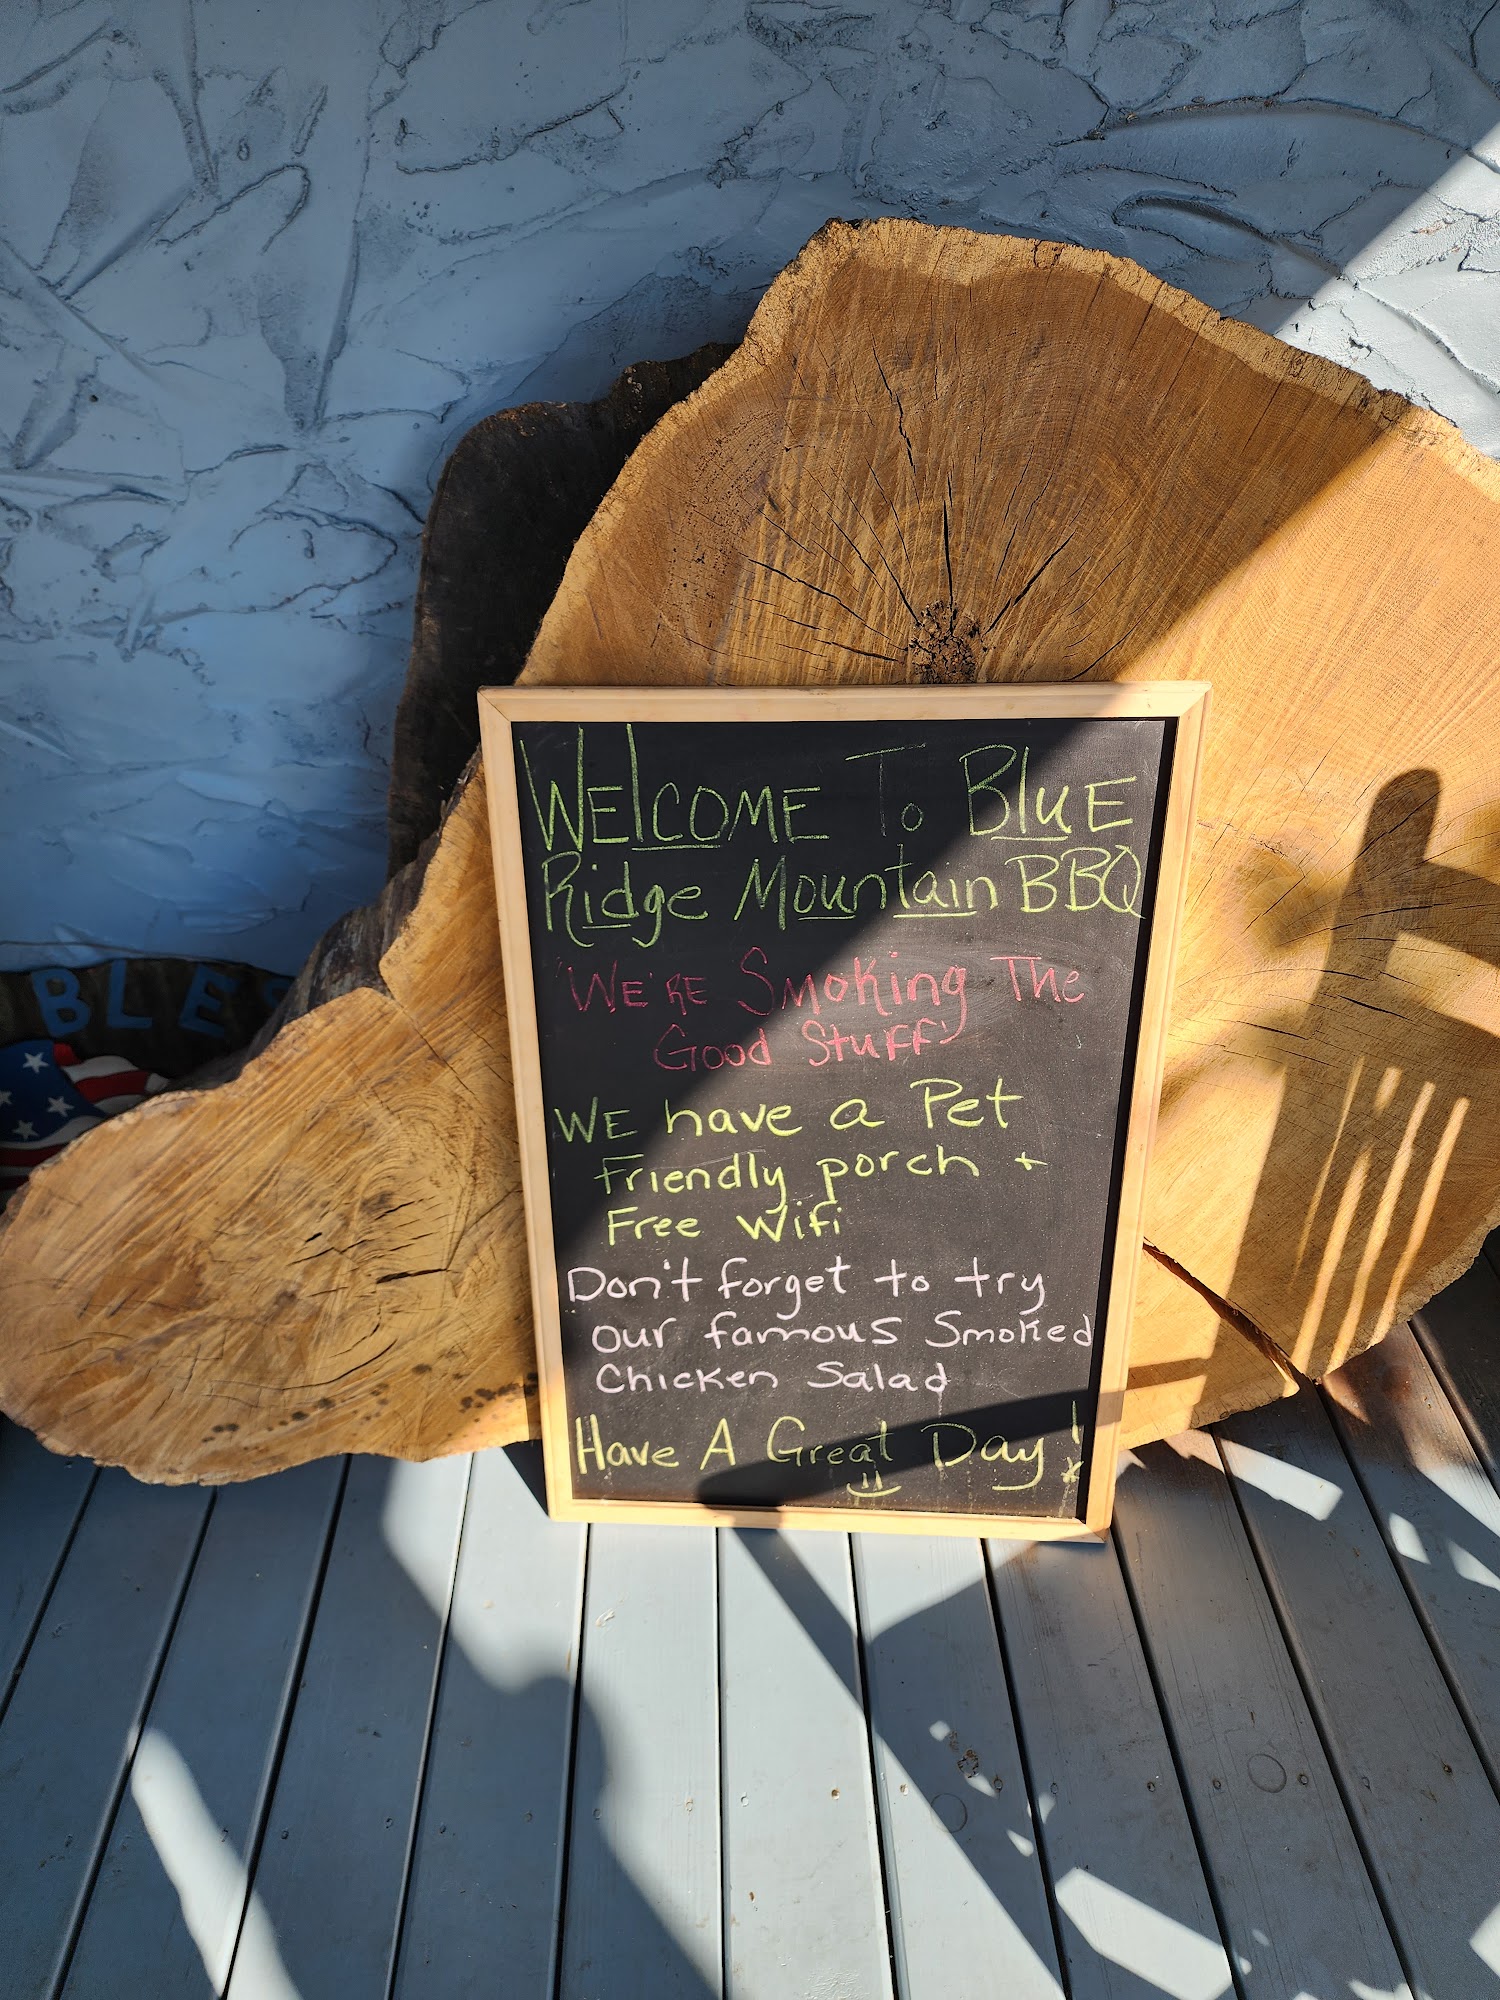 BLES
WElCOME To BluE
Ridge Mountain BBQ
"WE'RE Smoking The
Good Stuff"
WE have a Pet
Friendly porch +
Free Wifi
Don't forget to try
our famous Smoked
Chicken Salad
Have A Great Day!